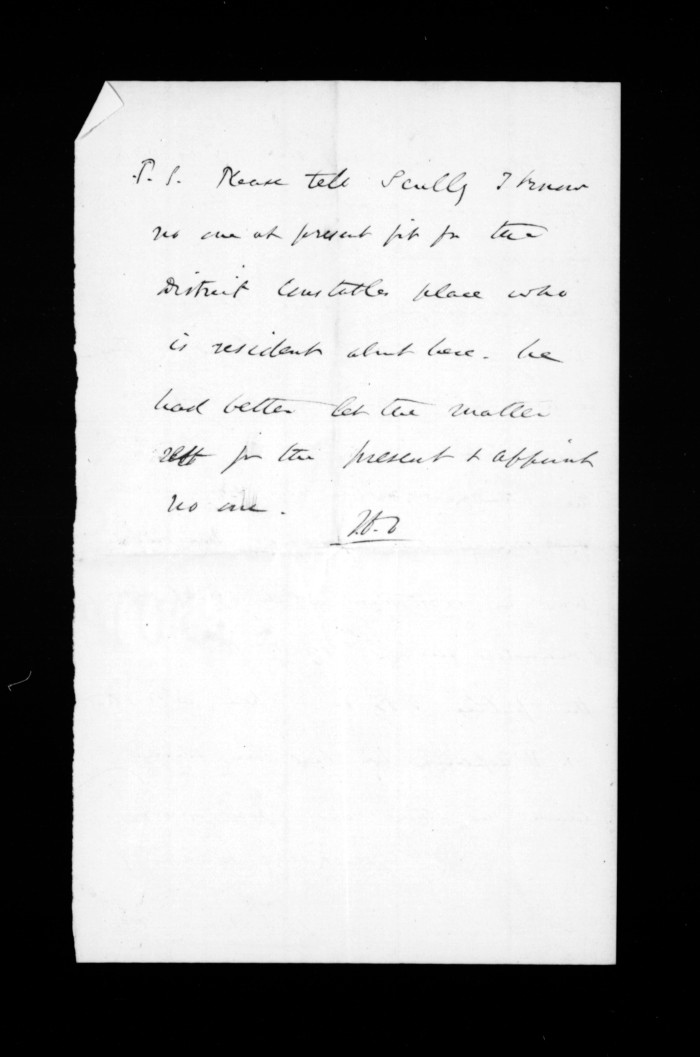 P. S. Please tell Scully I know
no one at present fit for the
District Constables place who
is resident about here. he
had better let the matter
rest for the present & appoint
no one.